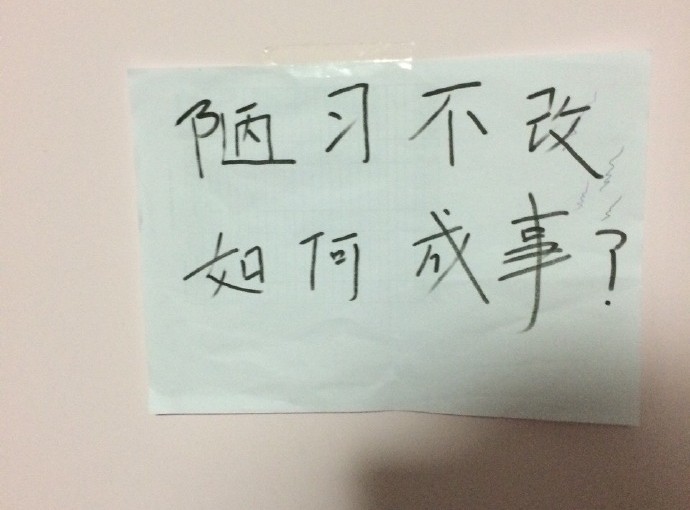 陋习不改
如何成事?